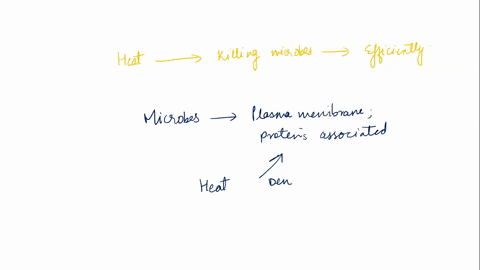 Heat → Killing microbes → Efficiently
Microbes → Plasma membrane;
proteins associated
Heat Den